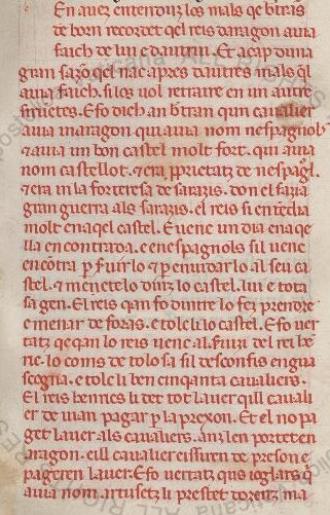 En auez entenduz los mals qe btrās
de born recordet qel reis daragon auia
faich de lui e dautrui. Et a cap duna
gran sazō qel nac apres dautres mals qel
auia faich. si los uol retraire en un autre
siruētes. E fo dich an btran qun caualier
auia in aragon qui auia nom nespagnols
⁊ auia un bon castel molt fort. qui auia
nom castellot. ⁊ era prīetatz de nespagl.
⁊ era in la forteresa de sarazis. don el fazia
gran guerra als sarazis. el reis si entēdia
molt en aqel castel. E uenc un dia en aqe
lla encontrada. e en espagnols sil uenc
encōtra ꝑ seruir lo ⁊ ꝑ enuidar lo al seu ca
stel. ⁊ menet el dinz lo castel. lui e tota
sa gen. El reis qan fo dintre lo fez prendre
e menar de foras. e tolc li lo castel. E fo uer
tatz qe qan lo reis uenc al seruizi del rei hē
ric. lo coms de tolosa sil desconfis en gua
scogna. e tolc li ben cinqanta caualiers.
El reis henrics li det tot lauer quill cauali
er deuian pagar ꝑ la prexon. Et el no pa
get lauer als caualiers. anz len portet en
aragon. eill caualier eissiren de preson e
pageren lauer. E fo uertatz qus ioglars qe
auia nom artusetz li prestet dorentz ma